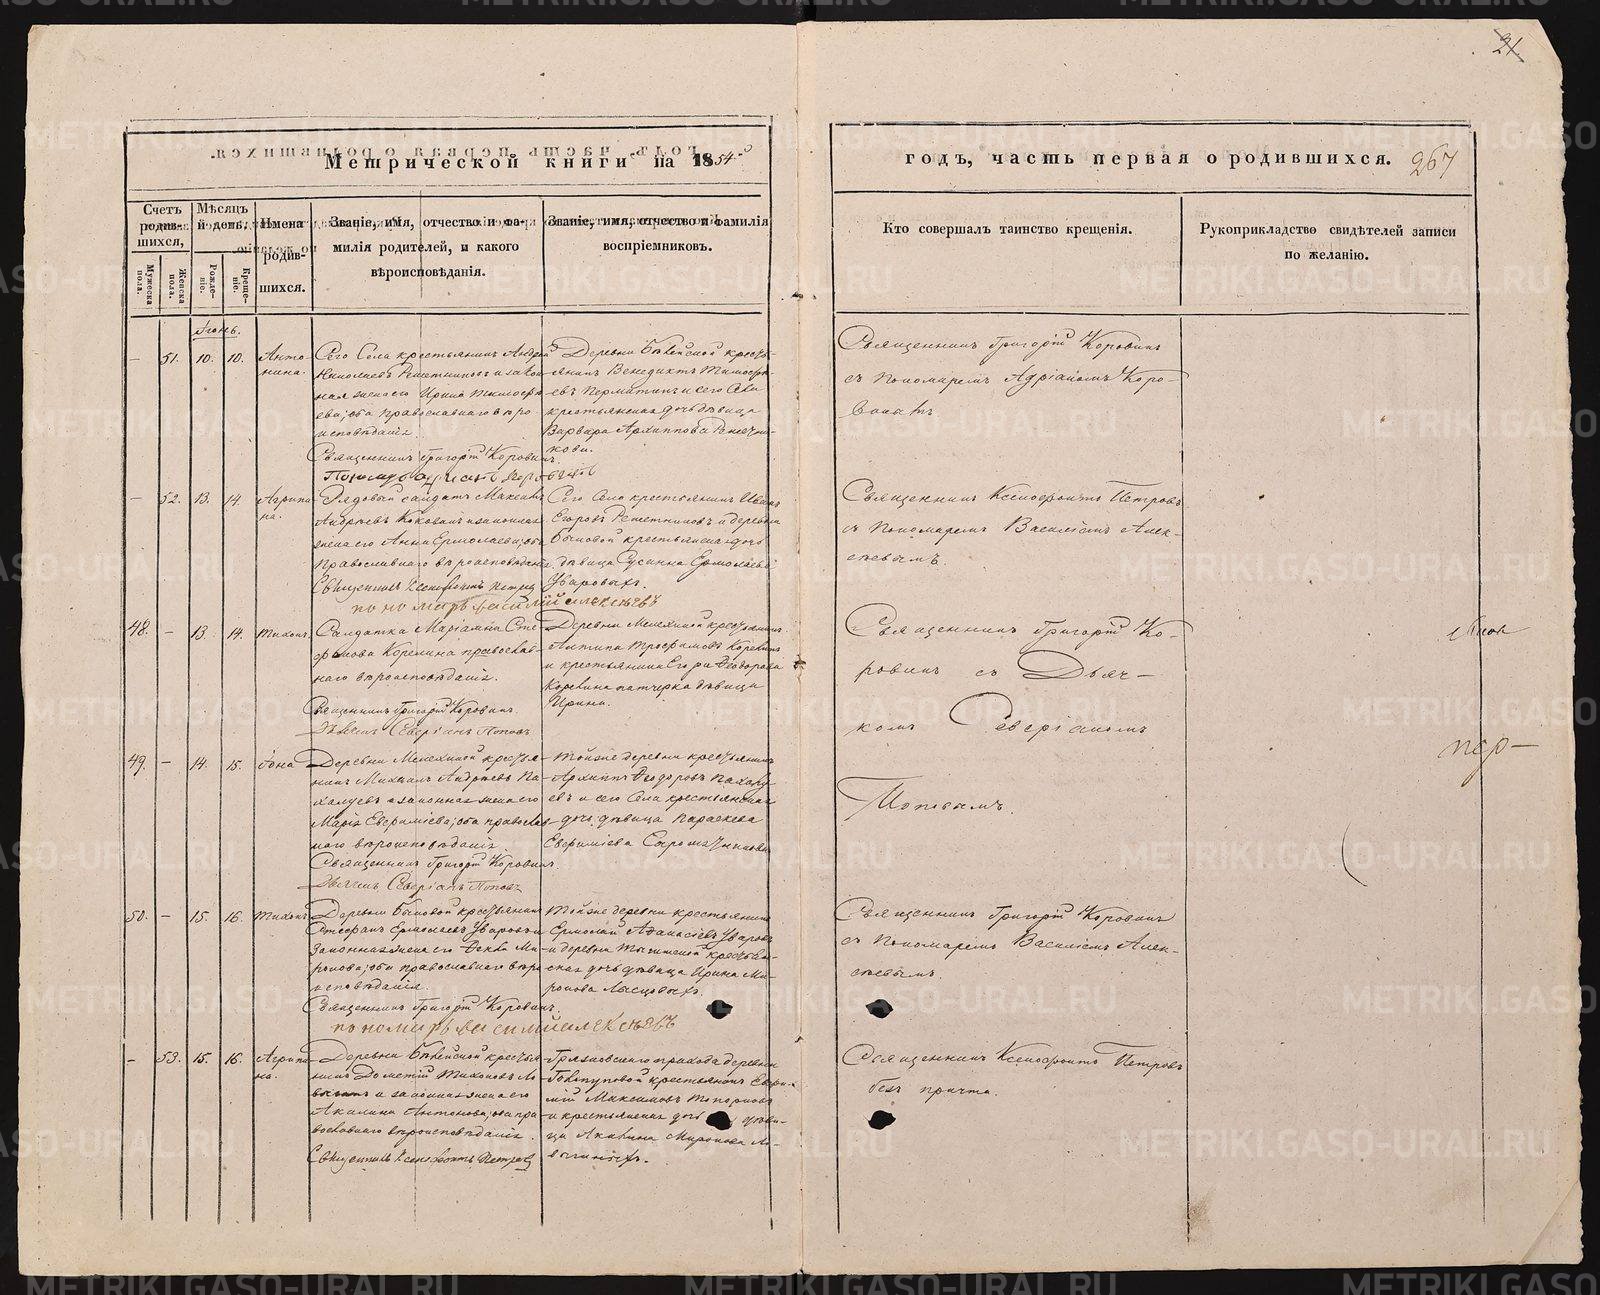 21.
Метрической книги на 1854 й
годъ, часть первая о родившихся. 267
Счетъ родив-
шихся,
Мужеска пола.
Женска пола.
Мѣсяцъ
и день.
Рожде-
ніе.
Креще-
ніе.
Имена
родив-
шихся.
Званіе, имя, отчество и фа-
милія родителей, и какого
вѣроисповѣданія.
Званіе, имя, отчество и фамилія
воспріемниковъ.
Кто совершалъ таинство крещенія.
Рукоприкладство свидѣтелей записи
по желанію.
Іюнь.
— 51. 10. 10. Анто-
нина.
Сего Села крестьянинъ Андрей
Николаевъ Решетниковъ и закон-
ная жена его Ирина Тимофе-
ева; оба православнаго вѣро
исповѣданія.
Священникъ Григорій Коровинъ.
Деревни
крестья-
янинъ Венедиктъ Тимофе-
евъ и сего Села
крестьянская дочь дѣвица
Варвара Архиппова Решетни-
кова.
Священникъ Григорій Коровинъ
съ Пономаремъ Адріаномъ Коро-
— 52. 13. 14. Агрипи-
на.
Рядовый салдатъ Максимъ
Андреевъ и законная
жена его Анна Ермолаева; оба
православнаго вѣроисповѣданія.
Священникъ Ксенофонтъ Петровъ
пономарь василій алексѣевъ
Сего Села крестьянинъ Иванъ
Егоровъ Решетниковъ и деревни
Быковой крестьянская дочь
дѣвица Сусанна Ермолаева
Уваровыхъ.
Священникъ Ксенофонтъ Петровъ
съ Пономаремъ Василіемъ Алек-
сѣевымъ.
48. — 13. 14. Тихонъ.
Салдатка Маріамна Сте-
фанова Корелина православ-
наго вѣроисповѣданія.
Священникъ Григорій Коровинъ.
Дьячекъ Северіанъ Поповъ
Деревни Мелехиной крестьянинъ
Антипа Трофимовъ Корелинъ
и крестьянина Егора Ѳеодорова
Корелина падчерка дѣвица
Ирина.
Священникъ Григорій Ко-
ровинъ съ Дьяч-
комъ Северіаномъ
49. — 14. 15. Іона
Деревни Мелехиной крестья-
нинъ Михаилъ Андреевъ Па-
халуевъ и законная жена его
Марія Евфиміева; оба православ-
наго вѣроисповѣданія.
Священникъ Григорій Коровинъ.
Дьячекъ Северіанъ Поповъ
Тойже деревни крестьянинъ
Архиппъ Ѳеодоровъ Пахалу-
евъ и сего Села крестьянская
дочь дѣвица Параскева
Евфиміева
Поповымъ.
пер—
50. — 15. 16. Тихонъ
Деревни Быковой крестьянинъ
Стефанъ Ермолаевъ Уваровъ и
законная жена его Ѳекла Ми-
ронова; оба православнаго вѣро
исповѣданія.
Священникъ Григорій Коровинъ.
пономарь василій алексѣевъ
Тойже деревни крестьянинъ
Ермолай Аѳанасіевъ Уваровъ
и деревни крестьян-
ская дочь дѣвица Ирина Ми-
ронова
Священникъ Григорій Коровинъ
съ Пономаремъ Василіемъ Алек-
сѣевымъ.
— 53. 15. 16. Агрипи-
на.
Деревни
крестья-
нинъ Дометій Тихоновъ
и законная жена его
Акилина Антонова; оба пра-
вославнаго вѣроисповѣданія.
Священникъ Ксенофонтъ Петровъ
Грязновскаго прихода деревни
крестьянинъ Евфи-
мій Максимовъ Топорковъ
и крестьянская дочь дѣви-
ца Акилина Миронова
Священникъ Ксенофонтъ Петровъ
безъ причта.
METRIKI.GASO-URAL.RU